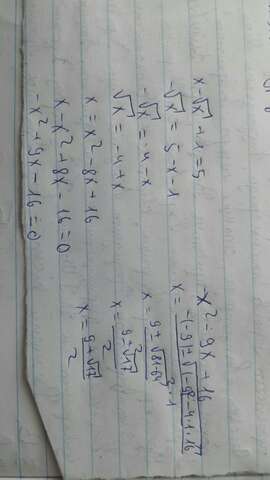 x-√x+1=5
-√x = 5-x-1
-√x = 4-x
√x = -4+x
x = x²-8x+16
x-x²+8x-16=0
-x²+9x-16=0
x²-9x+16
x = -(-9)±√(-9)²-4·1·16
2·1
x = 9±√81-64
2
x = 9±√17
2
x = 9+√17
2